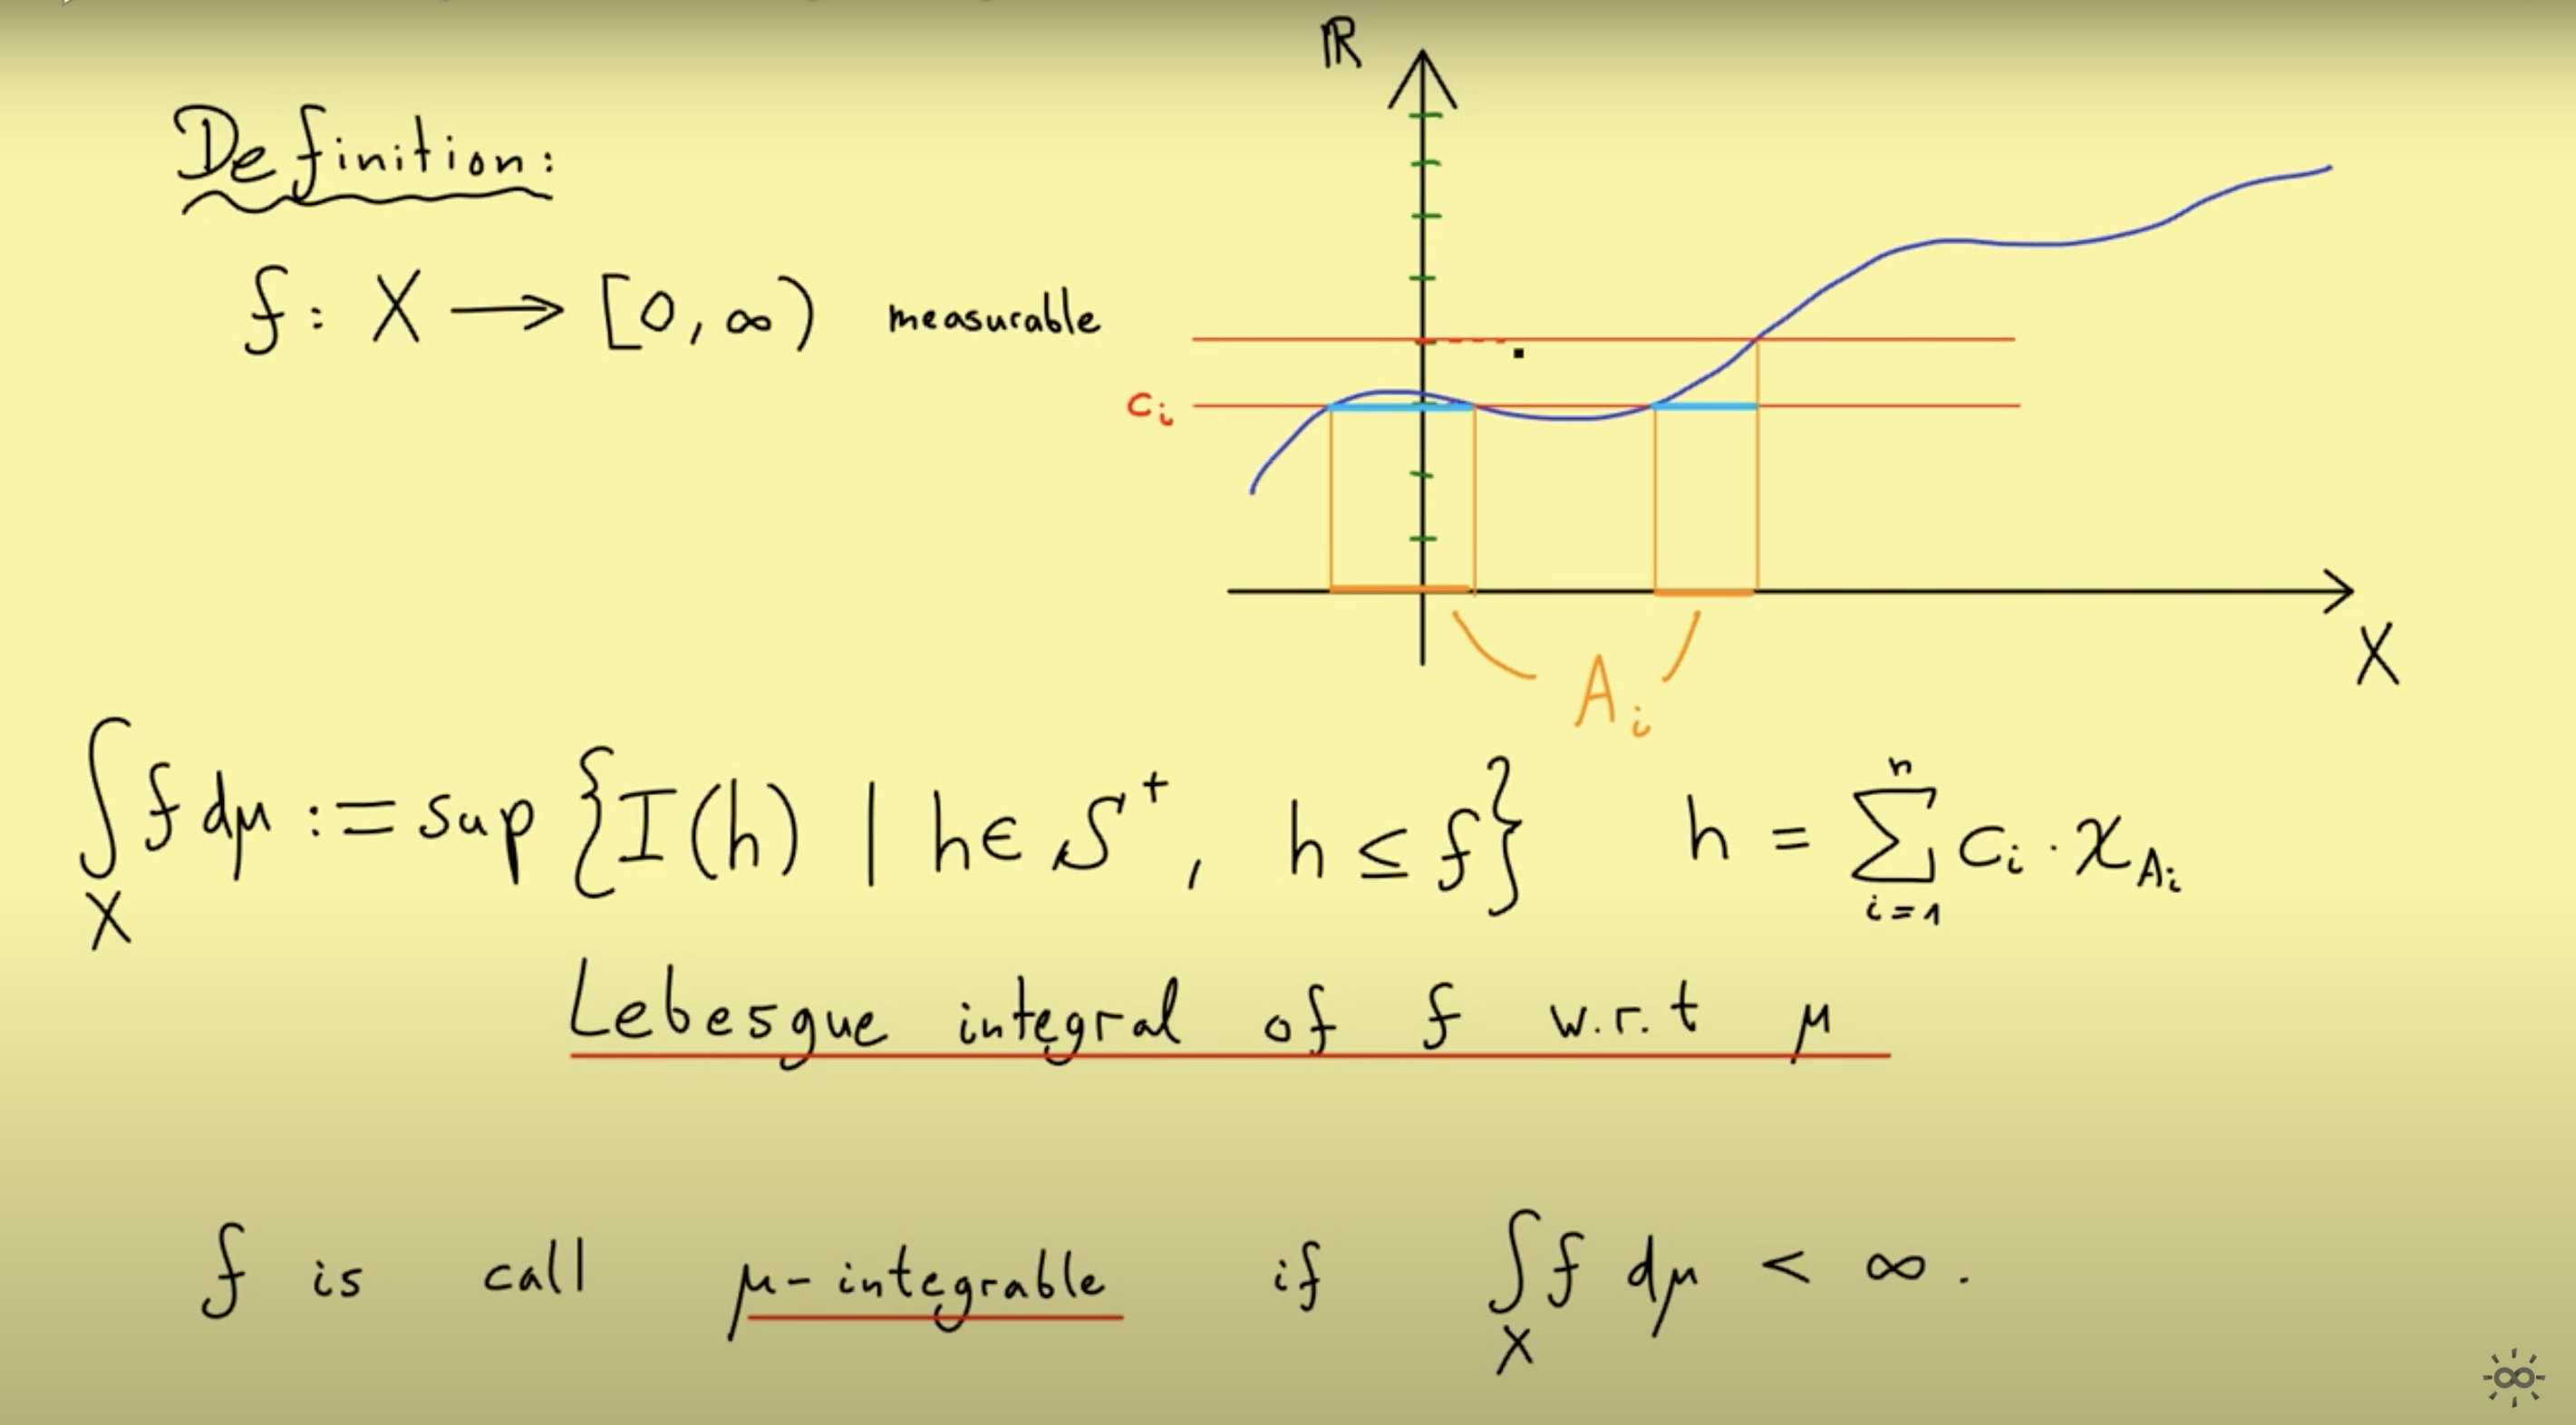 Definition:
f: X ⟶ [0, ∞) measurable
ℝ
cᵢ
X
Aᵢ
∫_X f dμ := sup {I(h) | h ∈ S⁺, h ≤ f} h = ∑_{i=1}^{n} cᵢ · χ_{Aᵢ}
Lebesgue integral of f w.r.t μ
f is call μ-integrable if ∫_X f dμ < ∞.